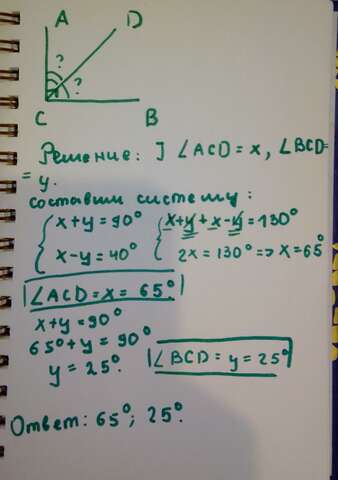 A D
? ?
C B
Решение: ] ∠ACD = x, ∠BCD =
= y.
Составим систему:
{ x + y = 90° { x + y + x - y = 130°
{ x - y = 40° { 2x = 130° => x = 65°
∠ACD = x = 65°
x + y = 90°
65° + y = 90°
y = 25°. ∠BCD = y = 25°
Ответ: 65°; 25°.